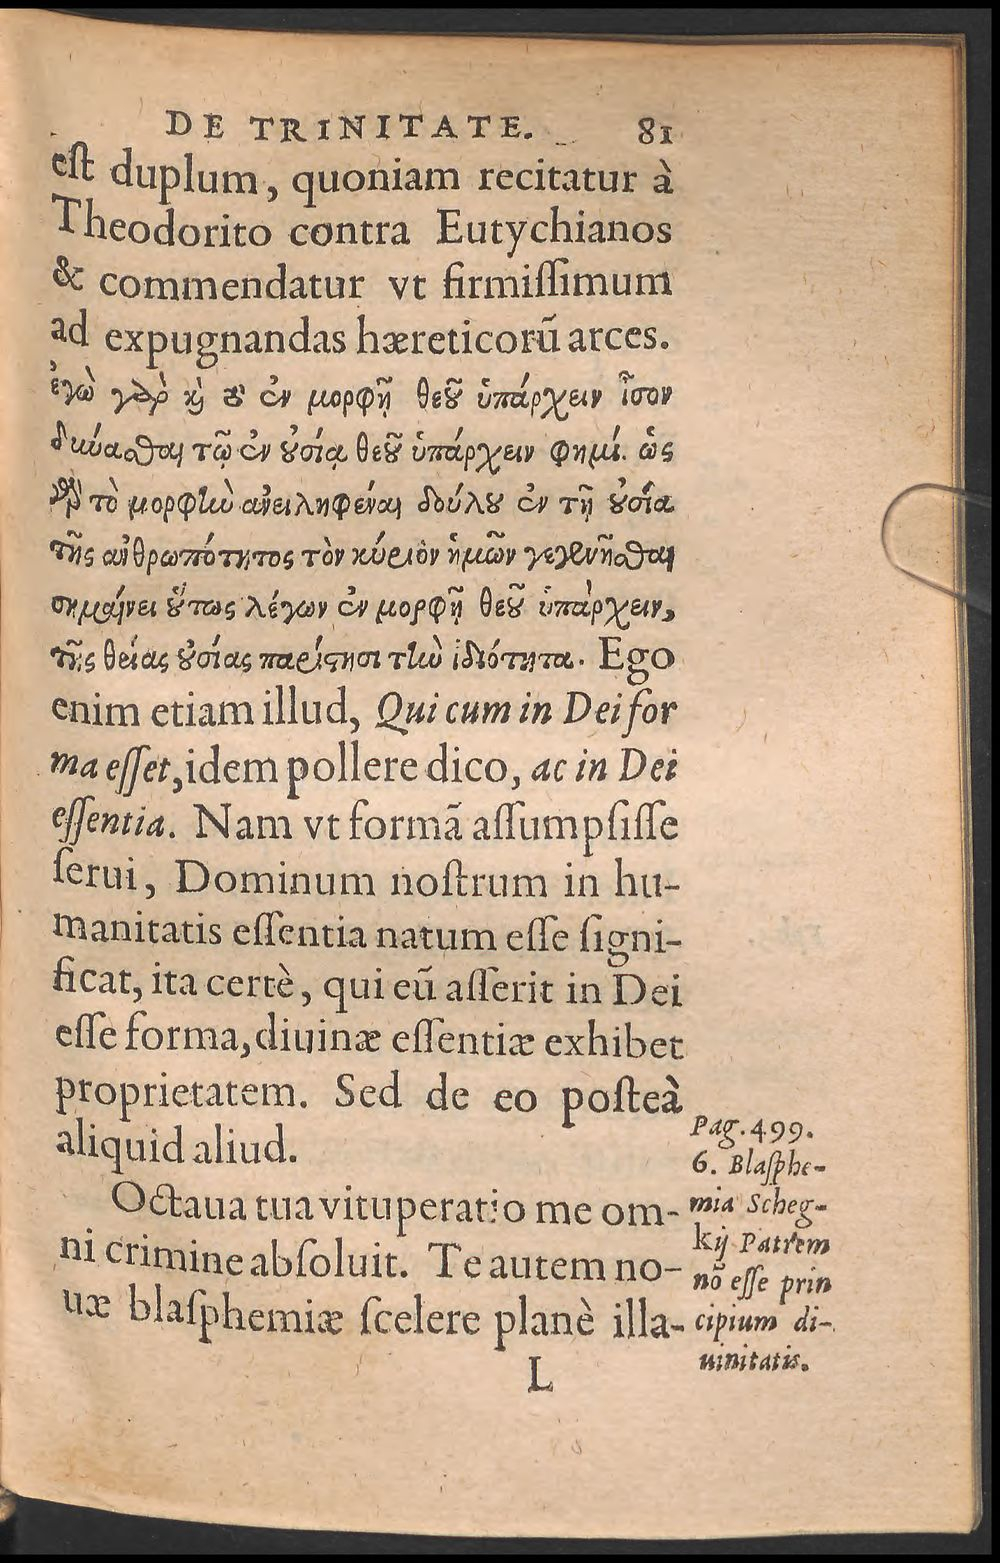 DE TRINITATE. 81
est duplum, quoniam recitatur à
Theodorito contra Eutychianos
& commendatur vt firmissimum
ad expugnandas hæreticorũ arces.
ἐγὼ γὰρ καὶ τὸ ἐν μορφῇ θεοῦ ὑπάρχειν ἶσον
δύναϑαι τῷ ἐν οὐσίᾳ θεοῦ ὑπάρχειν φημί. ὡς
γὰρ τὸ μορφὴν ἀνειληφέναι δούλου ἐν τῇ οὐσίᾳ
τῆς ἀνθρωπότητος τὸν κύριον ἡμῶν γεγενῆσθαι
σημαίνει οὕτως λέγων ἐν μορφῇ θεοῦ ὑπάρχειν,
τῆς θείας οὐσίας παρίστησι τὴν ἰδιότητα. Ego
enim etiam illud, Qui cum in Dei for
ma esset, idem pollere dico, ac in Dei
essentia. Nam vt formã assumpsisse
serui, Dominum nostrum in hu-
manitatis essentia natum esse signi-
ficat, ita certè, qui eũ asserit in Dei
esse forma, diuinæ essentiæ exhibet
proprietatem. Sed de eo posteà
aliquid aliud.
Octaua tua vituperatio me om-
ni crimine absoluit. Te autem no-
uæ blasphemiæ scelere planè illa-
L
Pag. 499.
6. Blasphe-
mia Scheg-
kij Patrem
nõ esse prin
cipium di-
uinitatis.